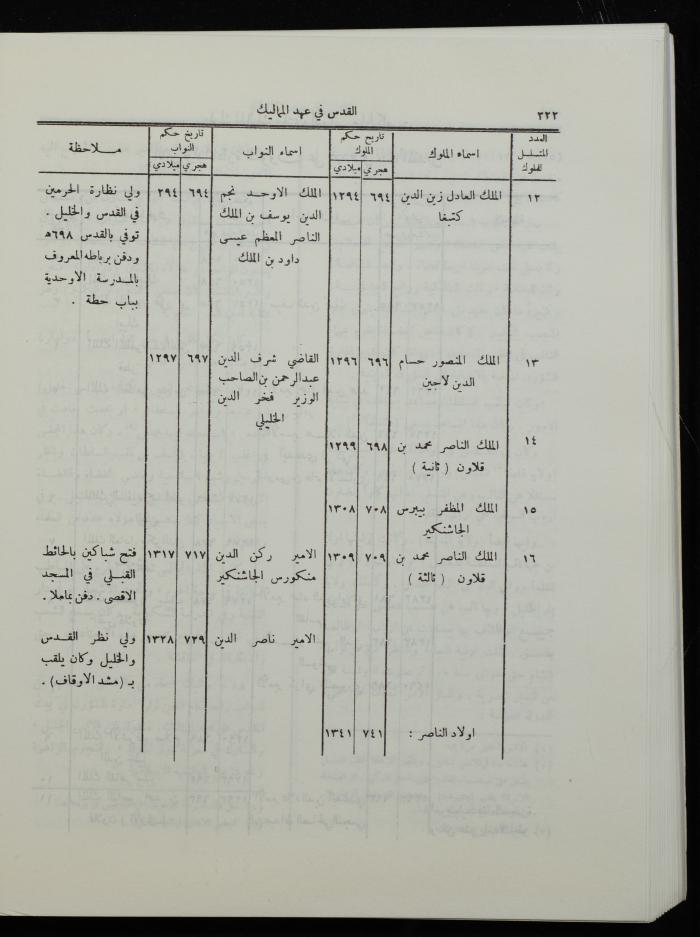 ٣٢٢
القدس في عهد المماليك
العدد المتسلسل للملوك | اسماء الملوك | تاريخ حكم الملوك هجري ميلادي | اسماء النواب | تاريخ حكم النواب هجري ميلادي | مــلاحظة
١٢ | الملك العادل زين الدين | ٦٩٤ | ١٢٩٤ | الملك الاوحد نجم | ٦٩٤ | ٢٩٤ | ولي نظارة الحرمين
كتبغا | الدين يوسف بن الملك | في القدس والخليل .
الناصر المعظم عيسى | توفي بالقدس ٦٩٨ھ
داود بن الملك | ودفن برباطه المعروف
بالمدرسة الاوحدية
بباب حطة .
١٣ | الملك المنصور حسام | ٦٩٦ | ١٢٩٦ | القاضي شرف الدين | ٦٩٧ | ١٢٩٧
الدين لاجين | عبدالرحمن بن الصاحب
الوزير فخر الدين
الخليلي
١٤ | الملك الناصر محمد بن | ٦٩٨ | ١٢٩٩
قلاون ( ثانية )
١٥ | الملك المظفر بيبرس | ٧٠٨ | ١٣٠٨
الجاشنكير
١٦ | الملك الناصر محمد بن | ٧٠٩ | ١٣٠٩ | الامير ركن الدين | ٧١٧ | ١٣١٧ | فتح شباكين بالحائط
قلاون ( ثالثة ) | منكورس الجاشنكير | القبلي في المسجد
الاقصى . دفن بماملا .
الامير ناصر الدين | ٧٢٩ | ١٣٢٨ | ولي نظر القدس
والخليل وكان يلقب
بـ (مشد الاوقاف) .
اولاد الناصر : | ٧٤١ | ١٣٤١